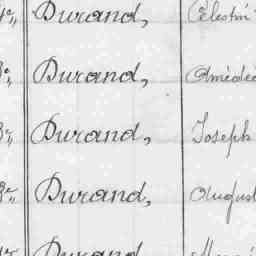 Durand, Célestin
Durand, Amédée
Durand, Joseph
Durand, August
Durand,